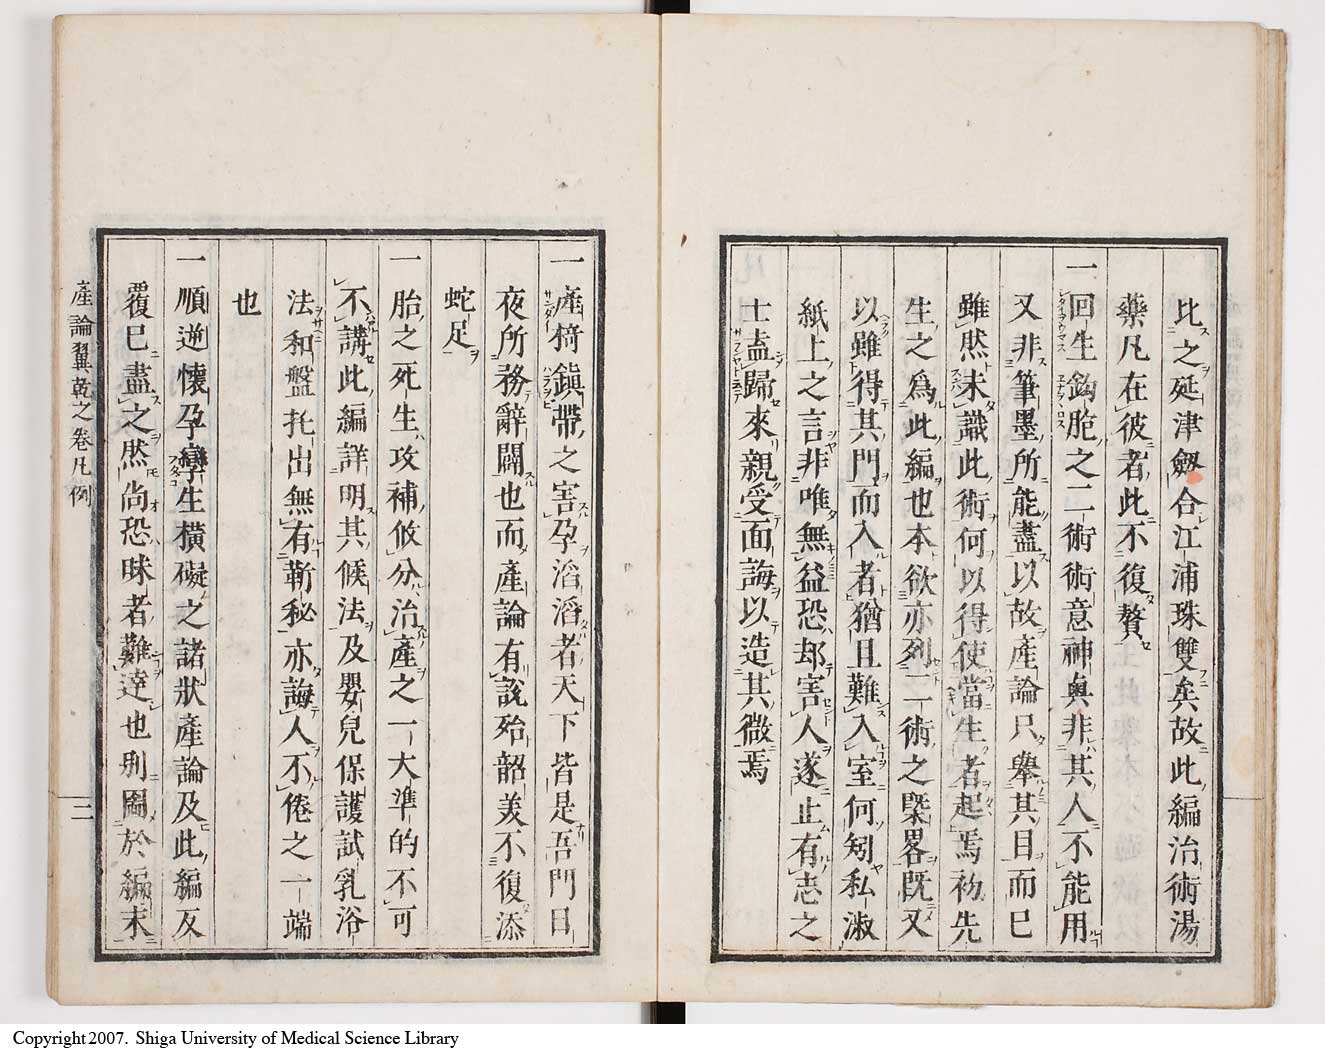 比之延津劔合江浦珠雙矣故此編治術湯
藥凡在彼者此不復贅
一回生鈎胞之二術術意神奥非其人不能用
又非筆墨所能盡以故產論只舉其目而已
雖然未識此術何以得使當生者起焉初先
生之爲此編也本欲亦列二術之槩畧旣又
以雖得其門而入者猶且難入室何矧私淑
紙上之言非唯無益恐却害人遂止有志之
士盍歸來親受面誨以造其微焉
一產椅鎮帶之害孕滔滔者天下皆是吾門日
夜所務辭闢也而產論有說殆韶美不復添
蛇足
一胎之死生攻補攸分治產之一大準的不可
不講此編詳明其候法及嬰兒保護試乳浴
法和盤托出無有靳秘亦誨人不倦之一端
也
一順逆懷孕孿生橫礙之諸狀產論及此編反
覆已盡之然尚恐昧者難達也別圖於編末
產論翼乾之卷凡例
三
Copyright 2007. Shiga University of Medical Science Library